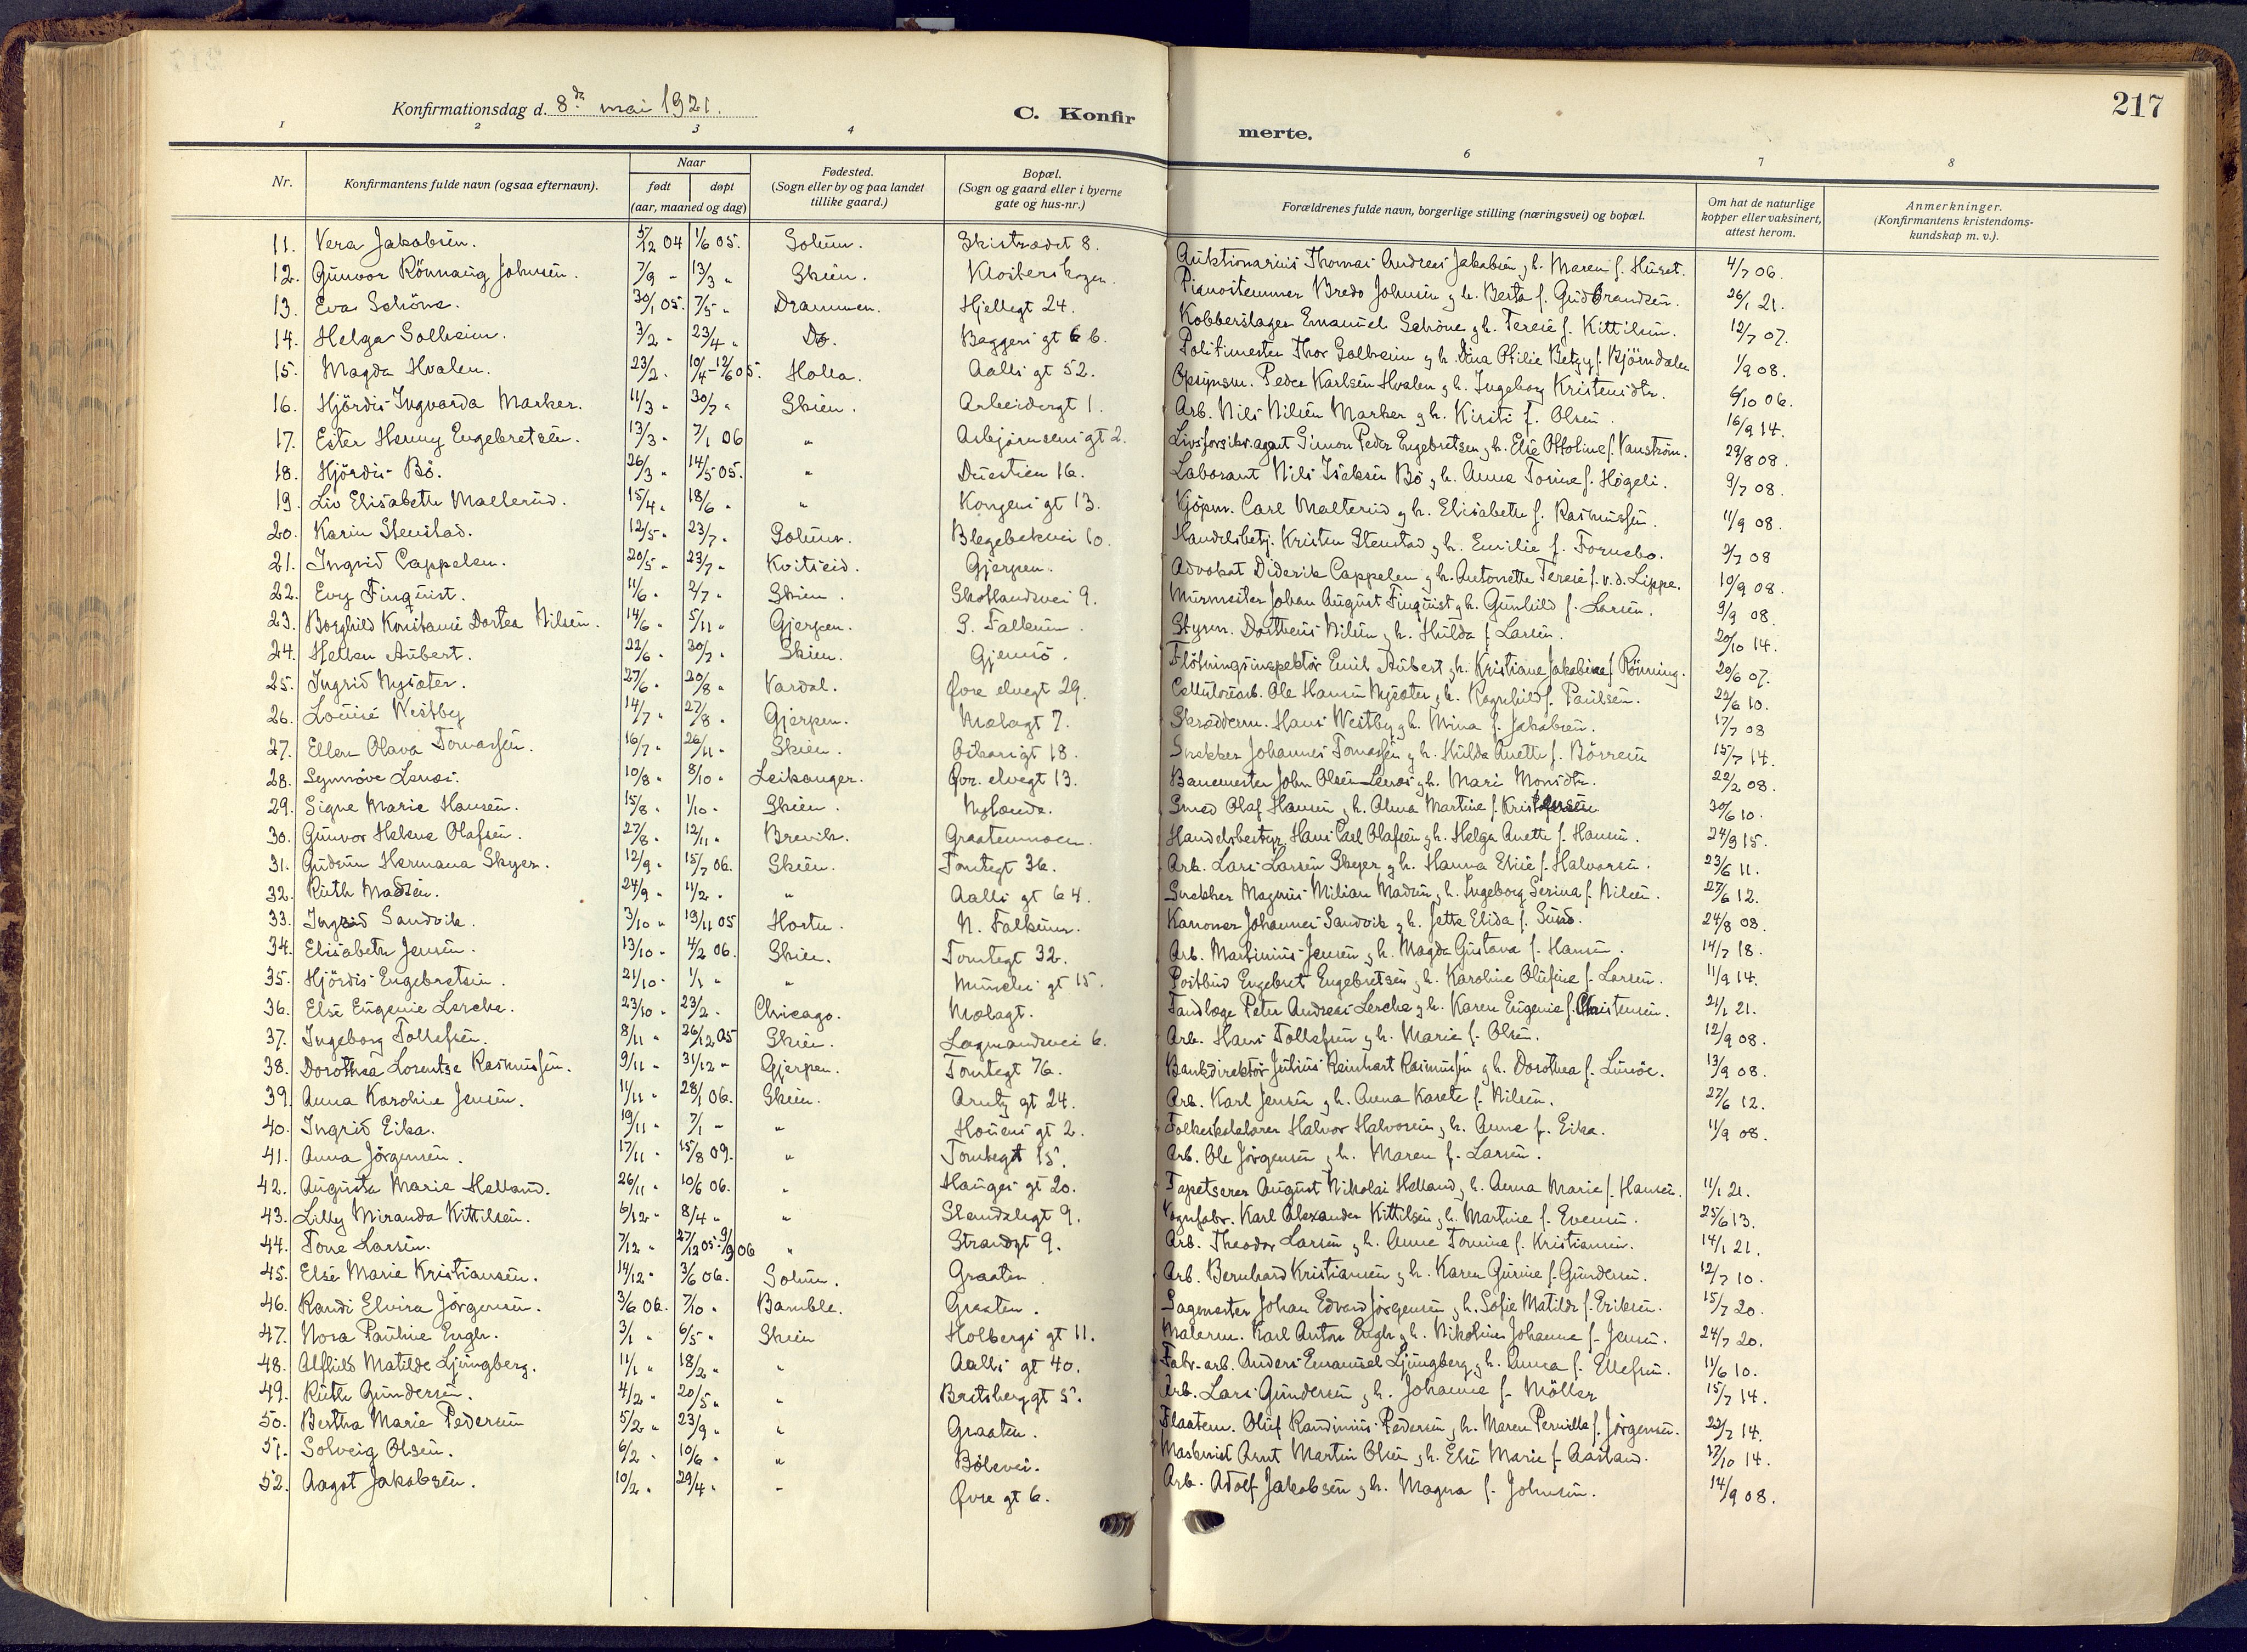 217
Konfirmationsdag d. 8de mai 1921.
C. Konfir
merte.
1 2 3 4 6 7 8
Nr. Konfirmantens fulde navn (ogsaa efternavn). Naar født døpt (aar, maaned og dag) Fødested. (Sogn eller by og paa landet tillike gaard.) Bopæl. (Sogn og gaard eller i byerne gate og hus-nr.) Forældrenes fulde navn, borgerlige stilling (næringsvei) og bopæl. Om hat de naturlige kopper eller vaksinert, attest herom. Anmerkninger. (Konfirmantens kristendomskundskap m. v.).
11. Vera Jakobsen. 5/12 04 1/6 05. Solum. Skistrædet 8. Auktionarius Thomas Andreas Jakobsen g. h. Maren f. Huset. 4/7 06.
12. Gunvor Rönnaug Johnsen. 7/9 " 13/3 " Skien. Klosterskogen. Pianostemmer Bredo Johnsen g. h. Berta f. Gudbrandsen. 26/1 21.
13. Eva Schöne. 30/1 05. 7/5 " Drammen. Hjellegt 24. Kobberslager Emanuel Schöne g. h. Terese f. Kittilsen. 12/7 07.
14. Helga Solheim. 3/2 " 23/4 " Do. Baggers gt 6 b. Politimester Thor Solheim g. h. Dina Otilie Betzy f. Björndalen 1/9 08.
15. Magda Hvalen. 23/2 " 10/4 - 12/6 05. Holla. Aalls gt 52. Opsynsm. Peder Karlsen Hvalen g. h. Ingeborg Kristensdtr. 6/10 06.
16. Hjördis Ingvarda Marker. 11/3 " 30/7 " Skien. Arbeidergt 1. Arb. Nils Nilsen Marker g. h. Kirsti f. Olsen. 16/9 14.
17. Ester Henny Engebretsen. 13/3 " 7/1 06 " Asbjörnsens gt 2. Livsforsikr. agent Simon Peder Engebretsen g. h. Else Ottoline f. Vanström. 29/8 08.
18. Hjördis Bö. 26/3 " 14/5 05. " Duestien 16. Laborant Nils Isaksen Bö g. h. Anna Torine f. Högeli. 9/7 08.
19. Liv Elisabeth Mallerud. 15/4 " 18/6 " " Kongens gt 13. Kjöpm. Carl Mallerud g. h. Elisabeth f. Rasmussen. 11/9 08.
20. Karin Stenstad. 12/5 " 23/7 " Solum. Blegebekvei 10. Handelsbetj. Kristen Stenstad g. h. Emilie f. Fornebo. 2/7 08
21. Ingrid Cappelen. 20/5 " 23/7 " Kvitseid. Gjerpen. Advokat Diderik Cappelen g. h. Antonette Terese f. v. d. Lippe. 10/9 08.
22. Evy Finquist. 11/6 " 2/7 " Skien. Skotlandsvei 9. Murmester Johan August Finquist g. h. Gunhild f. Larsen. 9/9 08.
23. Borghild Konstanse Dortea Nilsen. 14/6 " 5/11 " Gjerpen. S. Falkum. Styrm. Dortheus Nilsen g. h. Hulda f. Larsen. 20/10 14.
24. Hellen Aubert. 22/6 " 30/7 " Skien. Gjemsö. Flötningsinspektör Emil Aubert g. h. Kristiane Jakobine f. Rönning. 20/6 07.
25. Ingrid Nysæter. 27/6 " 20/8 " Vardal. Øvre elvegt 29. Cellulosearb. Ole Hansen Nysæter g. h. Ragnhild f. Paulsen. 22/6 10.
26. Louise Westby 14/7 " 27/8 " Gjerpen. Mælagt 7. Skrædderm. Hans Westby g. h. Mina f. Jakobsen. 17/7 08
27. Ellen Olava Tomassen. 16/7 " 26/11 " Skien. Oskars gt 18. Snekker Johannes Tomassen g. h. Hulda Anette f. Börresen 15/7 14.
28. Synnöve Lenæs. 10/8 " 8/10 " Leikanger. Øvr. elvegt 13. Banemester John Olsen Lenæs g. h. Mari Monsdtr. 22/2 08.
29. Signe Marie Hansen. 15/8 " 1/10 " Skien. Nylænde. Smed Olaf Hansen g. h. Alma Martine f. Kristensen 30/6 10.
30. Gunvor Helene Olafsen. 27/8 " 12/11 " Brevik. Graatenmoen. Handelsbestyr. Hans Carl Olafsen g. h. Helga Anette f. Hansen. 24/9 15.
31. Gudrun Hermana Skyer. 12/9 " 15/7 06. Skien. Tomtegt 36. Arb. Lars Larsen Skyer g. h. Hanna Elise f. Halvorsen. 23/6 11.
32. Ruth Madsen. 24/9 " 11/2 " " Aalls gt 64. Snekker Magnus Milian Madsen g. h. Ingeborg Serina f. Nilsen. 27/6 12.
33. Ingrid Sandvik. 3/10 " 19/11 05 Horten. N. Falkum. Kanoner Johannes Sandvik g. h. Jette Elida f. Sund. 24/8 08.
34. Elisabeth Jensen. 13/10 " 4/2 06. Skien. Tomtegt 32. Arb. Martinius Jensen g. h. Magda Gustava f. Hansen. 14/7 18.
35. Hjördis Engebretsen. 21/10 " 1/1 " " Munchs gt 15. Postbud Engebret Engebretsen g. h. Karoline Olufine f. Larsen. 11/9 14.
36. Else Eugenie Lerche. 23/10 " 23/2 " Chicago. Mælagt. Tandlæge Peter Andreas Lerche g. h. Karen Eugenie f. Christensen. 21/1 21.
37. Ingeborg Tollefsen. 8/11 " 26/12 05 Skien. Lagmandsvei 6. Arb. Hans Tollefsen g. h. Marie f. Olsen. 12/9 08.
38. Dorothea Lorentse Rasmussen. 9/11 " 31/12 " Gjerpen. Tomtegt 76. Bankdirektör Julius Reinhart Rasmussen g. h. Dorothea f. Lunöe. 13/9 08.
39. Anna Karoline Jensen. 11/11 " 28/1 06. Skien. Arntz gt 24. Arb. Karl Jensen g. h. Anna Kasete f. Nilsen. 27/6 12.
40. Ingrid Eika. 19/11 " 7/1 " " Houens gt 2. Folkeskolelærer Halvor Halvorsen g. h. Anne f. Eika. 11/9 08.
41. Anna Jörgensen. 17/11 " 15/8 09. " Tomtegt 15. Arb. Ole Jörgensen g. h. Maren f. Larsen.
42. Augusta Marie Helland. 26/11 " 10/6 06. " Hauges gt 20. Tapetserer August Nikolai Helland g. h. Anna Marie f. Hansen. 11/1 21.
43. Lilly Miranda Kittilsen. 6/12 " 8/4 " " Slemdalsgt 9. Vognfabr. Karl Alexander Kittilsen g. h. Martine f. Evensen. 25/6 13.
44. Tove Larsen. 7/12 " 27/12 05 - 9/9 06 " Strandgt 9. Arb. Theodor Larsen g. h. Anne Tomine f. Kristiansen. 14/1 21.
45. Else Marie Kristiansen. 14/12 " 3/6 06. Solum. Graaten. Arb. Bernhard Kristiansen g. h. Karen Gurine f. Gundersen. 12/7 10.
46. Randi Elvira Jörgensen. 3/6 06. 7/10 " Bamble. Graaten. Sagmester Johan Edvard Jörgensen g. h. Sofie Matilde f. Eriksen. 15/7 20.
47. Nora Pauline Engh. 3/1 " 6/5 " Skien Holbergs gt 11. Malerm. Karl Anton Engh g. h. Nikoline Johanne f. Jensen. 24/7 20.
48. Alfhild Matilde Ljungberg. 11/1 " 18/2 " " Aalls gt 40. Fabr. arb. Anders Emanuel Ljungberg g. h. Anna f. Ellefsen. 11/6 10.
49. Ruth Gundersen. 4/2 " 20/5 " " Bratsberggt 5. Arb. Lars Gundersen g. h. Johanne f. Möller 15/7 14.
50. Bertha Marie Pedersen 5/2 " 23/9 " " Graaten. Flaatem. Oluf Randinius Pedersen g. h. Maren Pernille f. Jörgensen. 22/7 14.
51. Solveig Olsen. 6/2 " 10/6 " " Bölevei. Maskinist Arnt Martin Olsen g. h. Else Marie f. Aasland. 17/10 14.
52. Aagot Jakobsen. 10/2 " 29/4 " " Øvre gt 6. Arb. Adolf Jakobsen g. h. Magna f. Johnsen. 14/9 08.